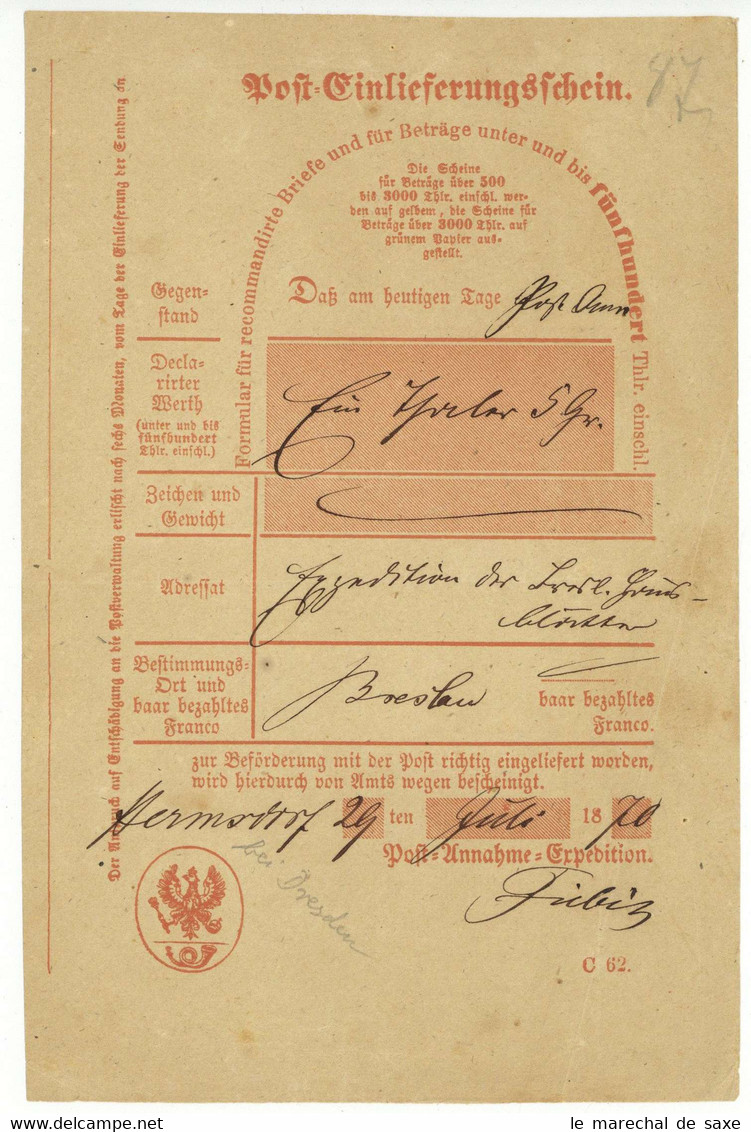 Post-Einlieferungsschein.
87
Formular für recommandirte Briefe und für Beträge unter und bis fünfhundert Thlr. einschl.
Die Scheine
für Beträge über 500
bis 3000 Thlr. einschl. wer-
den auf gelbem, die Scheine für
Beträge über 3000 Thlr. auf
grünem Papier aus-
gestellt.
Der Anspruch auf Entschädigung an die Postverwaltung erlischt nach sechs Monaten, vom Tage der Einlieferung der Sendung an
Gegen-
stand
Daß am heutigen Tage Post Anw
Decla-
rirter
Werth
(unter und bis
fünfhundert
Thlr. einschl.)
Ein Thaler 5 Gr.
Zeichen und
Gewicht
Adressat
Expedition der Bresl. Haus-
blätter
Bestimmungs-
Ort und
baar bezahltes
Franco
Breslau
baar bezahltes
Franco.
zur Beförderung mit der Post richtig eingeliefert worden,
wird hierdurch von Amts wegen bescheinigt.
Hermsdorf 29 ten Juli 1870
bei Dresden
Post-Annahme-Expedition.
C 62.
le marechal de saxe